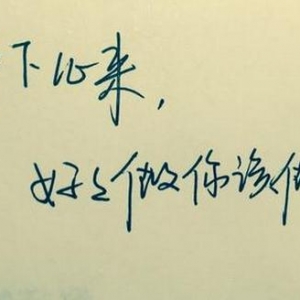 下心来,
好好做你该做